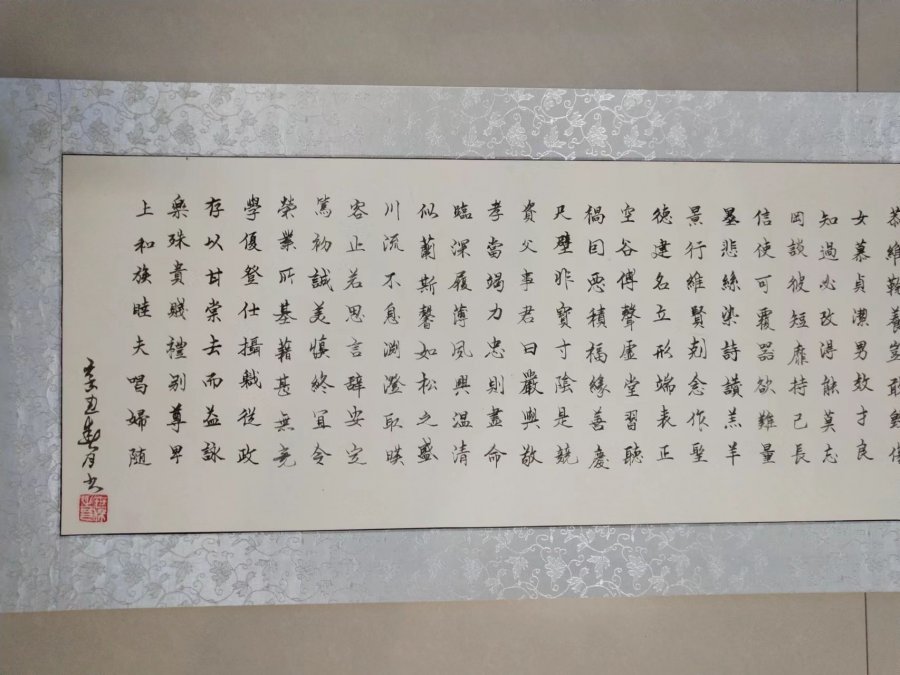 恭維鞠養豈敢毀傷
女慕貞潔男效才良
知過必改得能莫忘
罔談彼短靡恃己長
信使可覆器欲難量
墨悲絲染詩讚羔羊
景行維賢剋念作聖
德建名立形端表正
空谷傳聲虛堂習聽
禍因惡積福緣善慶
尺璧非寶寸陰是競
資父事君曰嚴與敬
孝當竭力忠則盡命
臨深履薄夙興温清
似蘭斯馨如松之盛
川流不息淵澄取暎
容止若思言辭安定
篤初誠美慎終宜令
榮業所基藉甚無竟
學優登仕攝職從政
存以甘棠去而益詠
樂殊貴賤禮別尊卑
上和族睦夫唱婦随
辛丑春月书